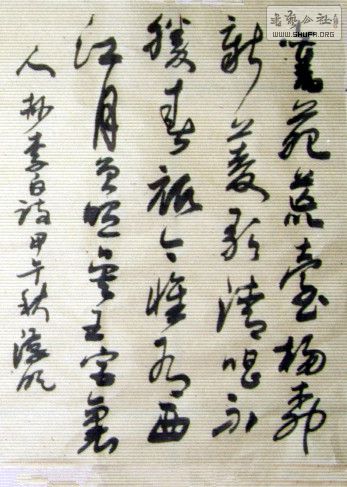 書藝公社
WWW.SHUFA.ORG
舊苑荒臺楊柳
新菱歌清唱不
勝春祇今惟有西
江月曾照吳王宮裏
人抄李白詩甲午秋